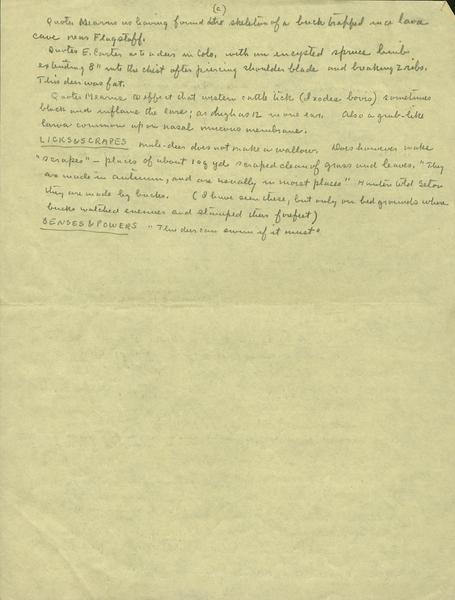 (c)
Quotes Mearns as having found the skeleton of a buck trapped in a lava
cave near Flagstaff.
Quotes E. Carter as to a deer in Colo. with an encysted spruce limb
extending 8" into the chest after piercing shoulder blade and breaking 2 ribs.
This deer was fat.
Quotes Mearns to effect that western cattle tick (Ixodes bovis) sometimes
block and inflame the ears; as high as 12 in one ear. Also a grub-like
larva common upon nasal mucous membrane.
LICKS & SCRAPES mule-deer does not make a wallow. Does however make
"scrapes" – places of about 1 sq yd scraped clean of grass and leaves. "They
are made in autumn, and are usually in moist places" Hunters told Seton
they are made by bucks. (I have seen these, but only on bed grounds where
bucks watched enemies and stamped their forefeet)
SENSES & POWERS "This deer can swim if it must"